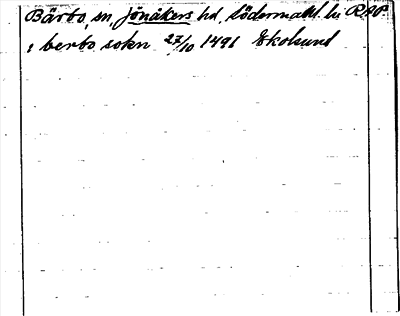 Bärbo, sn, Jönåkers hd, Södermanl. lä RAP.
i berbo sokn 27/10 1491 Ekolsund